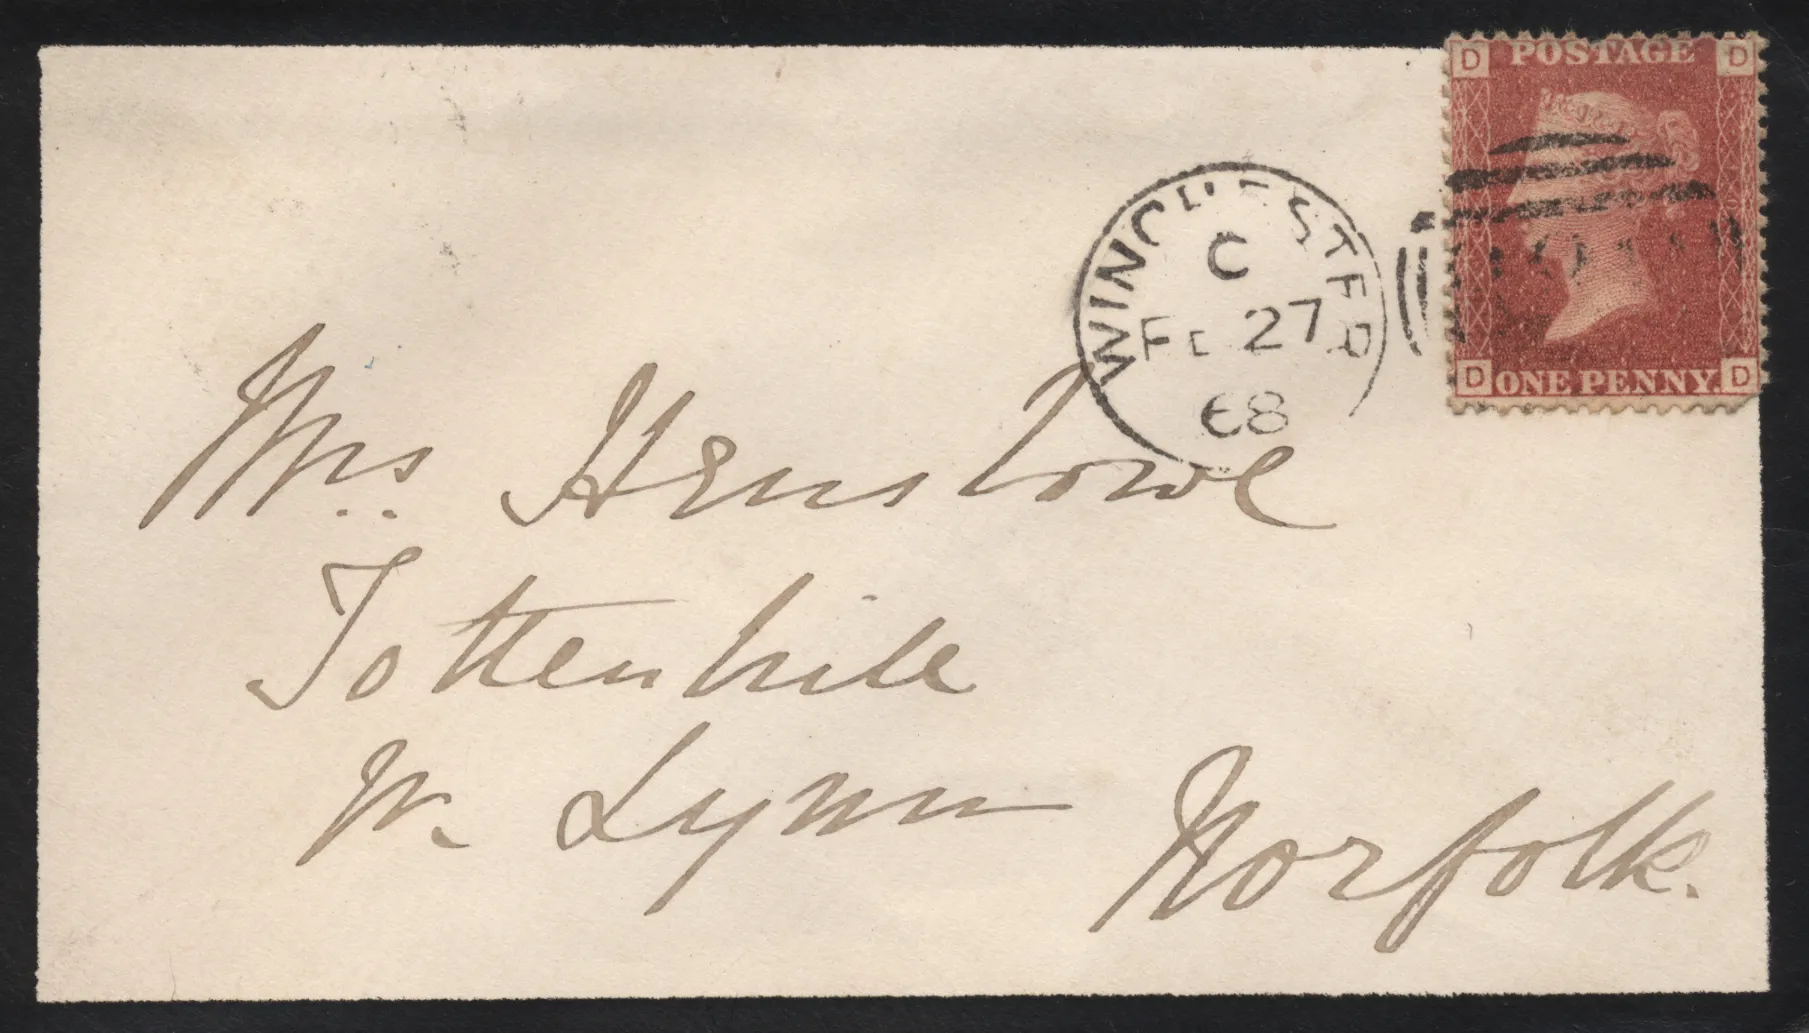 D POSTAGE D
D ONE PENNY D
WINCHESTER
C
FE 27
68
Mrs. Henslowe
Tottenhill
Nr. Lynn
Norfolk.